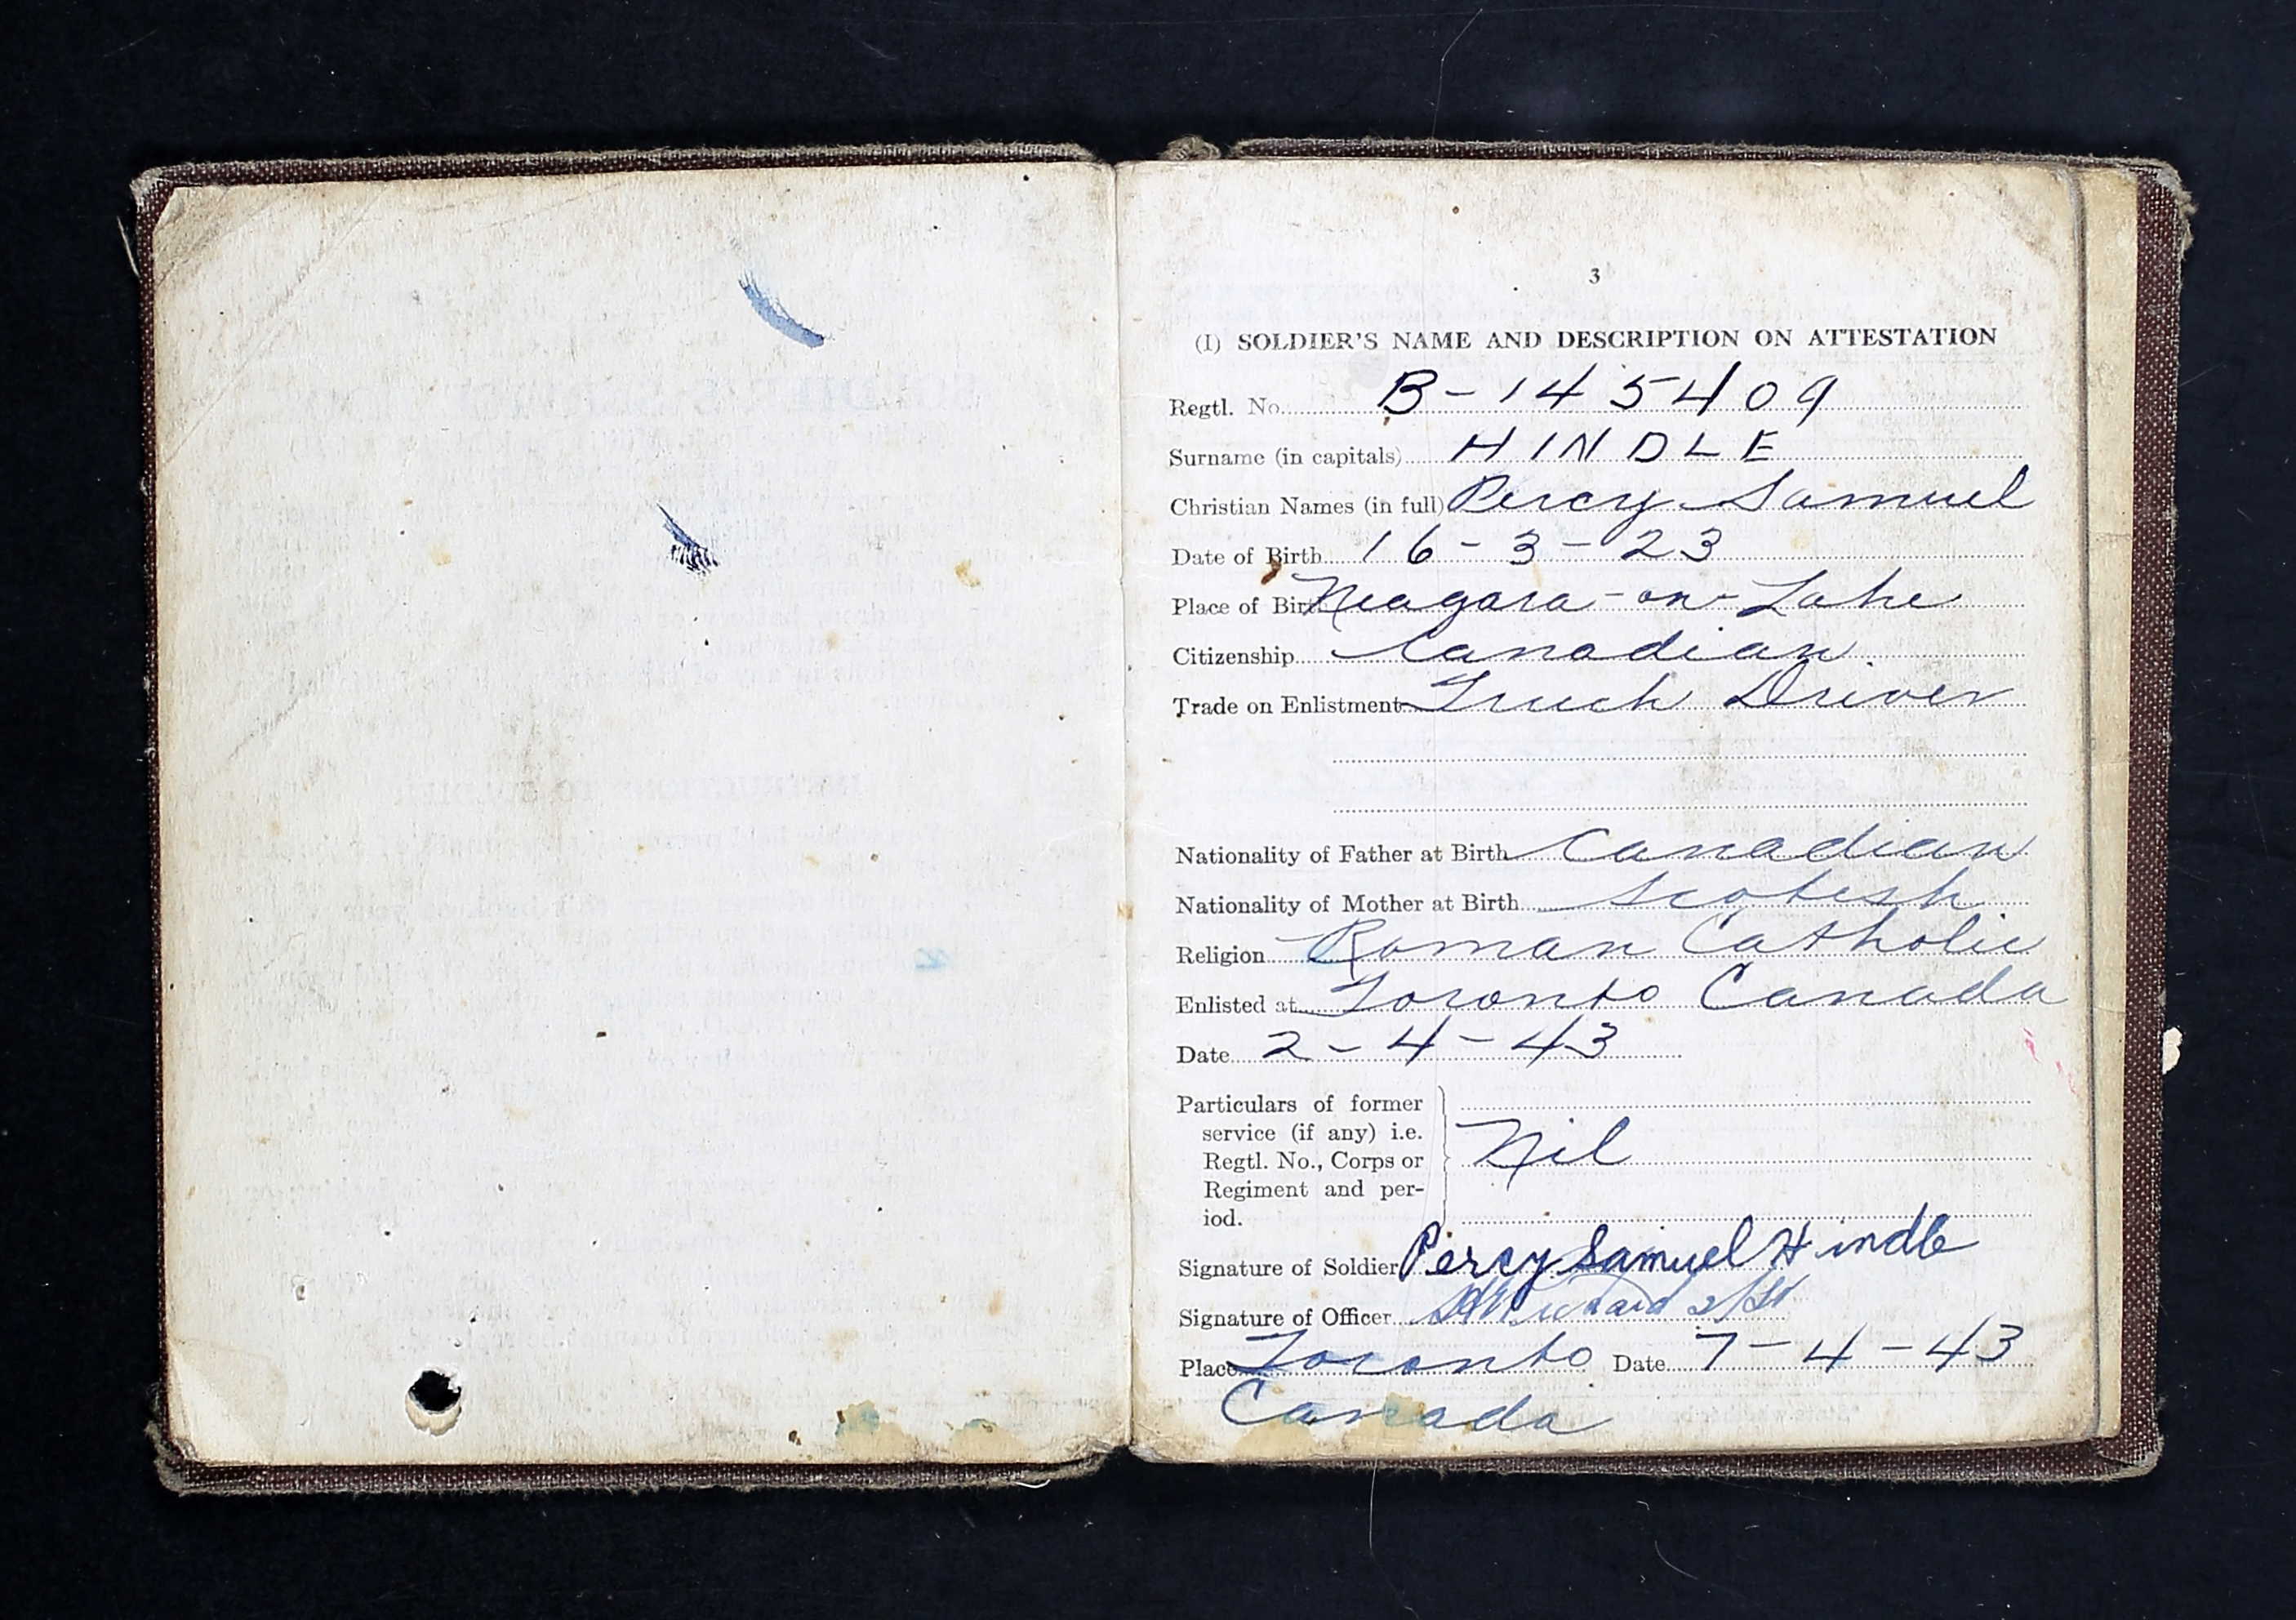 3
(I) SOLDIER'S NAME AND DESCRIPTION ON ATTESTATION
Regtl. No. B-145409
Surname (in capitals) HINDLE
Christian Names (in full) Percy Samuel
Date of Birth 16-3-23
Place of Birth Niagara-on-Lake
Citizenship Canadian
Trade on Enlistment Truck Driver
Nationality of Father at Birth Canadian
Nationality of Mother at Birth Scotish
Religion Roman Catholic
Enlisted at Toronto Canada
Date 2-4-43
Particulars of former
service (if any) i.e.
Nil
Regtl. No., Corps or
Regiment and per-
iod.
Signature of Soldier Percy Samuel Hindle
Signature of Officer 2/Lt
Place Toronto Date 7-4-43
Canada